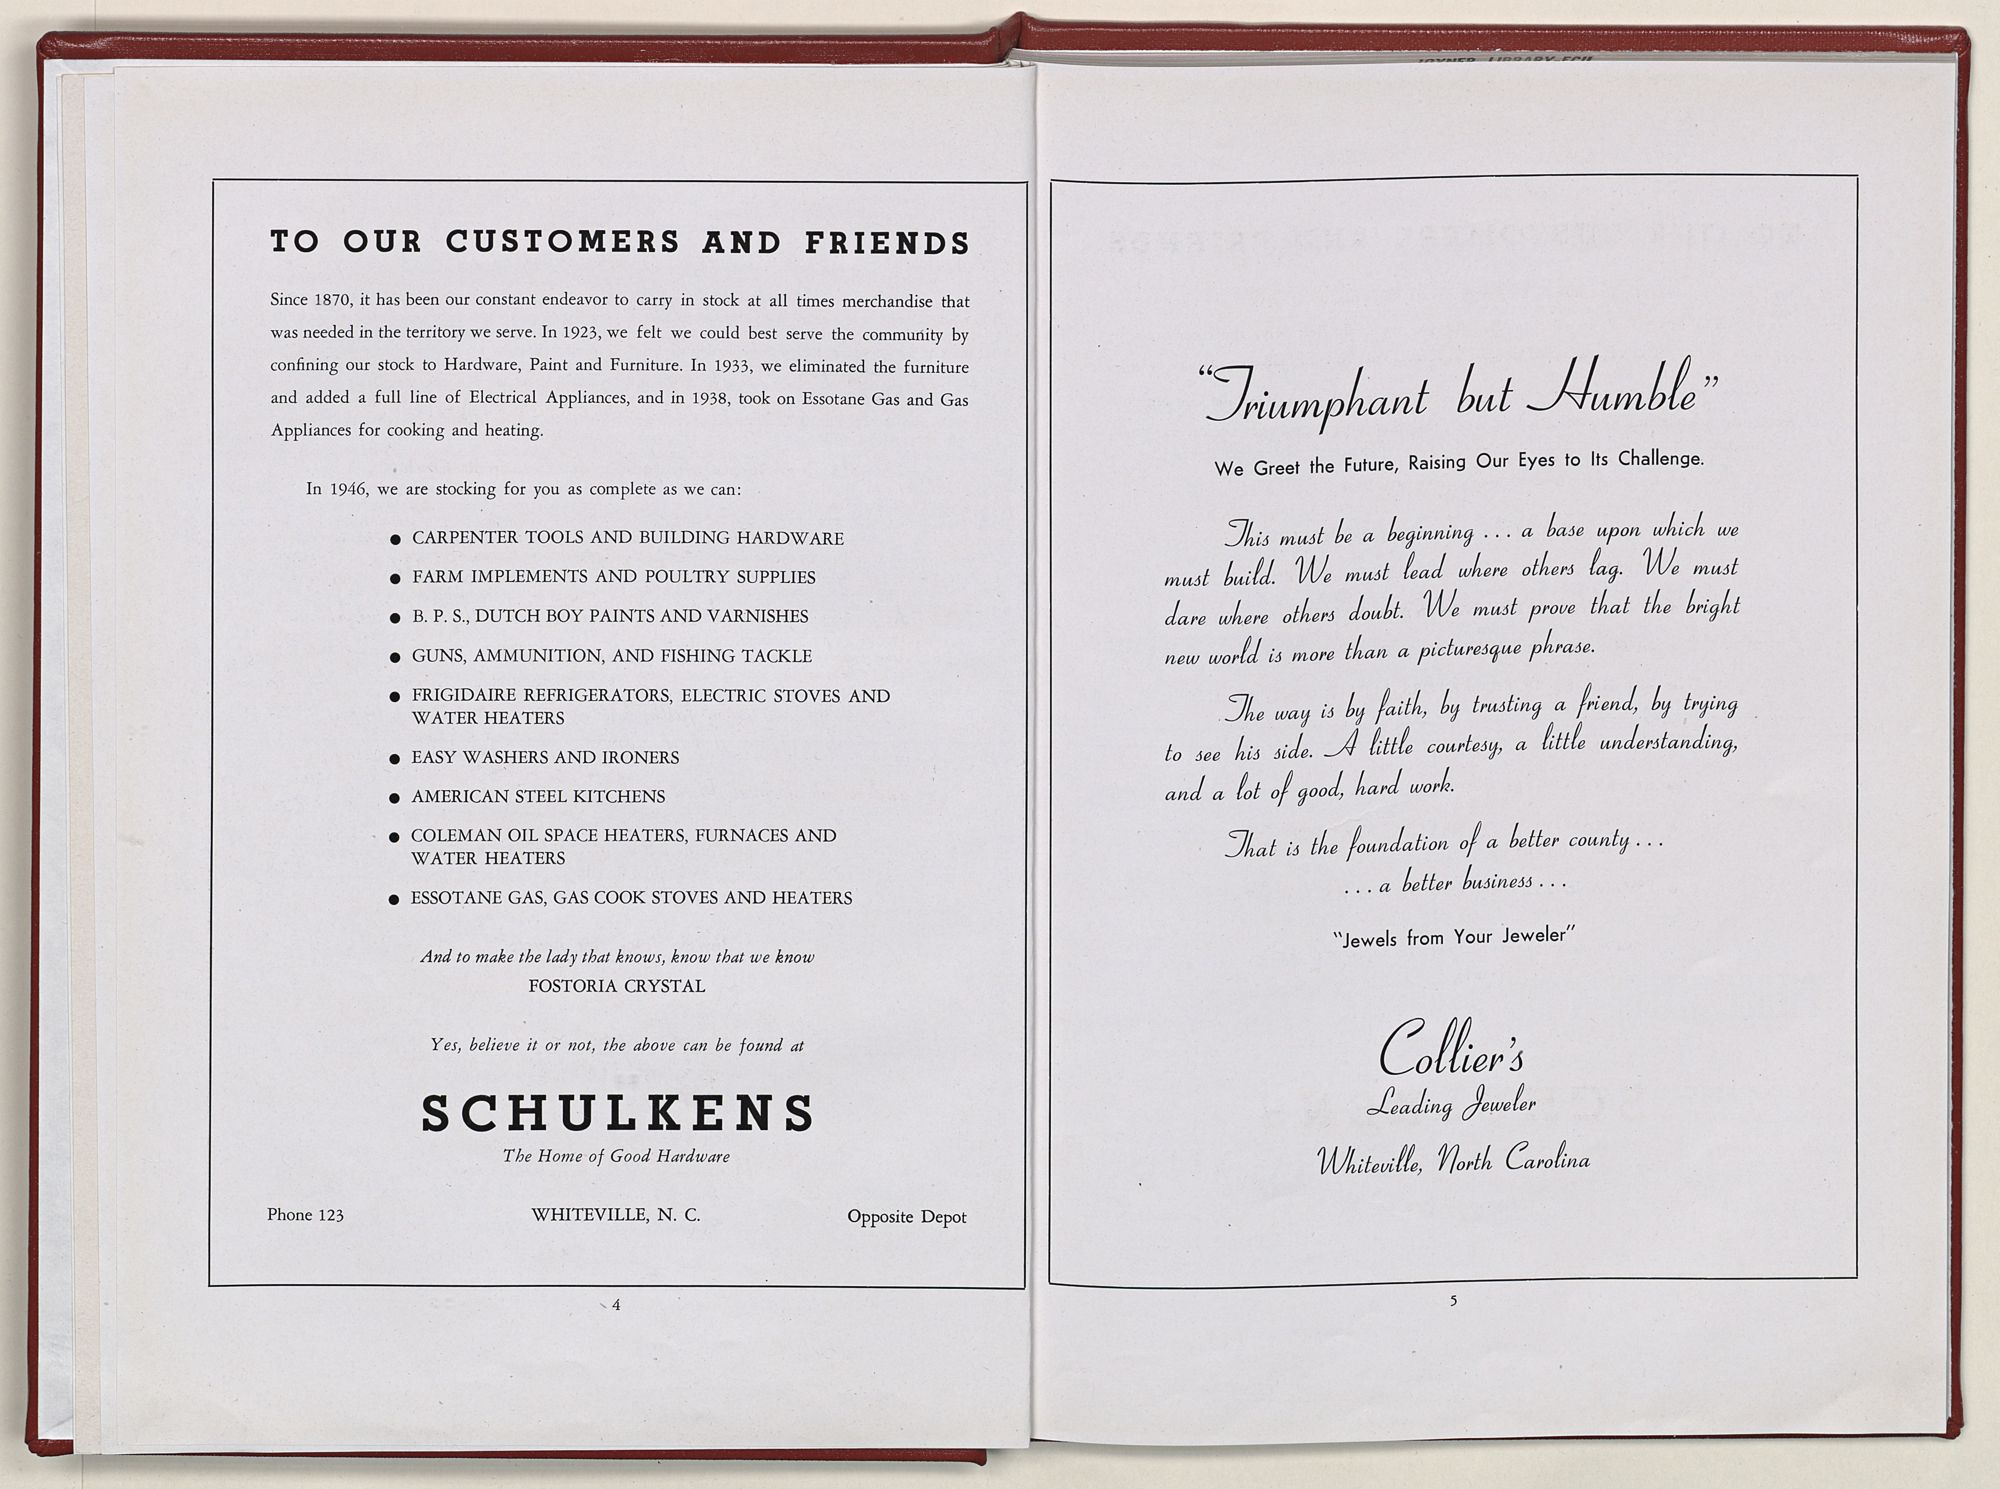 TO OUR CUSTOMERS AND FRIENDS
Since 1870, it has been our constant endeavor to carry in stock at all times merchandise that
was needed in the territory we serve. In 1923, we felt we could best serve the community by
confining our stock to Hardware, Paint and Furniture. In 1933, we eliminated the furniture
and added a full line of Electrical Appliances, and in 1938, took on Essotane Gas and Gas
Appliances for cooking and heating.
In 1946, we are stocking for you as complete as we can:
● CARPENTER TOOLS AND BUILDING HARDWARE
● FARM IMPLEMENTS AND POULTRY SUPPLIES
● B. P. S., DUTCH BOY PAINTS AND VARNISHES
● GUNS, AMMUNITION, AND FISHING TACKLE
● FRIGIDAIRE REFRIGERATORS, ELECTRIC STOVES AND
WATER HEATERS
● EASY WASHERS AND IRONERS
● AMERICAN STEEL KITCHENS
● COLEMAN OIL SPACE HEATERS, FURNACES AND
WATER HEATERS
● ESSOTANE GAS, GAS COOK STOVES AND HEATERS
And to make the lady that knows, know that we know
FOSTORIA CRYSTAL
Yes, believe it or not, the above can be found at
SCHULKENS
The Home of Good Hardware
Phone 123 WHITEVILLE, N. C. Opposite Depot
4
JOYNER LIBRARY-ECU
"Triumphant but Humble"
We Greet the Future, Raising Our Eyes to Its Challenge.
This must be a beginning . . . a base upon which we
must build. We must lead where others lag. We must
dare where others doubt. We must prove that the bright
new world is more than a picturesque phrase.
The way is by faith, by trusting a friend, by trying
to see his side. A little courtesy, a little understanding,
and a lot of good, hard work.
That is the foundation of a better county . . .
. . . a better business . . .
"Jewels from Your Jeweler"
Collier's
Leading Jeweler
Whiteville, North Carolina
5